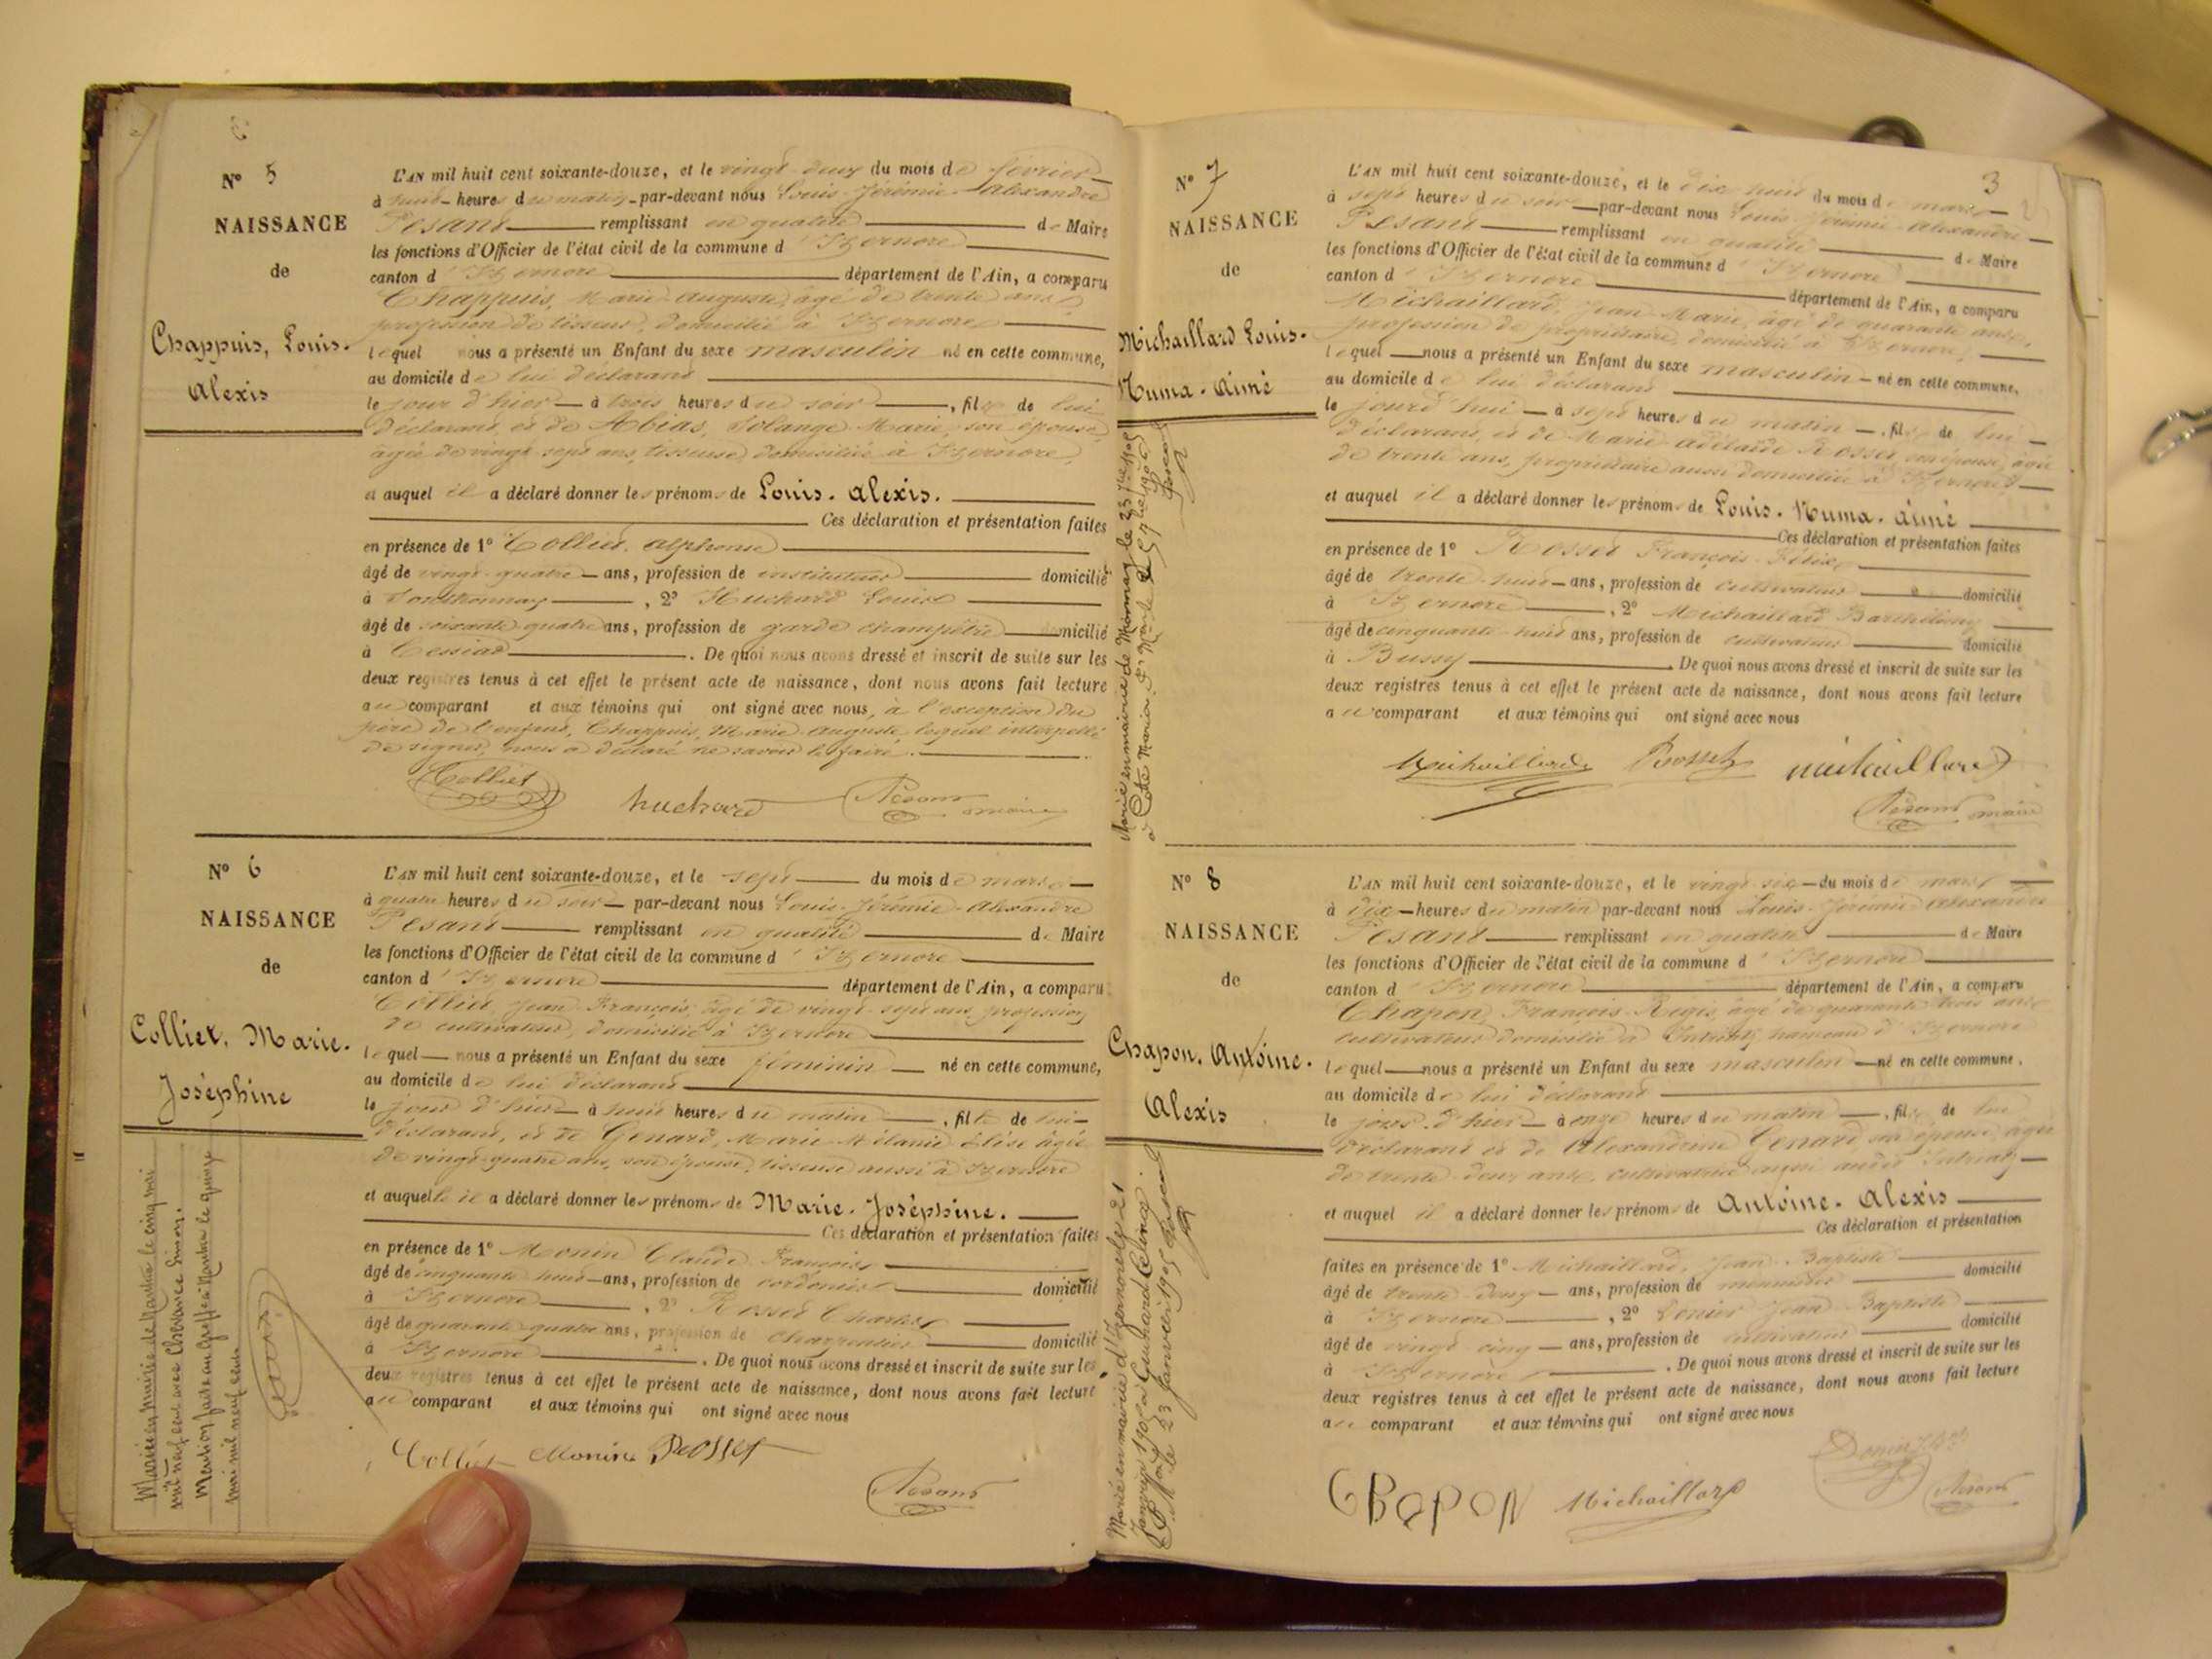 N° 5
NAISSANCE
de
Chappuis, Louis-
Alexis
L'AN mil huit cent soixante-douze, et le vingt deux du mois de février
à huit heures du matin par-devant nous Louis-Jérémie-Alexandre
Pesant remplissant en qualité de Maire
les fonctions d'Officier de l'état civil de la commune d'Izernore
canton d'Izernore département de l'Ain, a comparu
Chappuis, Marie-Auguste, âgé de trente ans,
profession de tisseur, domicilié à Izernore
lequel nous a présenté un Enfant du sexe masculin né en cette commune,
au domicile de lui déclarant
le jour d'hier à trois heures du soir, fils de lui
déclarant, et de Abias, Solange Marie, son épouse,
âgée de vingt sept ans, tisseuse, domiciliée à Izernore,
et auquel il a déclaré donner les prénoms de Louis-Alexis.
Ces déclaration et présentation faites
en présence de 1° Colliet, Alphonse
âgé de vingt-quatre ans, profession de instituteur domicilié
à, 2° Huchard Louis
âgé de soixante quatre ans, profession de garde champêtre domicilié
à Cessiat. De quoi nous avons dressé et inscrit de suite sur les
deux registres tenus à cet effet le présent acte de naissance, dont nous avons fait lecture
au comparant et aux témoins qui ont signé avec nous, à l'exception du
père de l'enfant, Chappuis, Marie-Auguste, lequel interpellé
de signer, nous a déclaré ne savoir le faire.
Colliet huchard Pesant maire
N° 6
NAISSANCE
de
Colliet, Marie-
Joséphine
Mariée en mairie de Nantua le cinq mai
mil neuf cent avec
Mention faite au Greffe à Nantua le quinze
mai mil neuf cent.
L'AN mil huit cent soixante-douze, et le sept du mois de mars
à quatre heures du soir par-devant nous Louis-Jérémie-Alexandre
Pesant remplissant en qualité de Maire
les fonctions d'Officier de l'état civil de la commune d'Izernore
canton d'Izernore département de l'Ain, a comparu
Colliet, Jean-François, âgé de vingt-sept ans, profession
de cultivateur, domicilié à Izernore
lequel nous a présenté un Enfant du sexe féminin né en cette commune,
au domicile de lui déclarant
le jour d'hier à huit heures du matin, fille de lui
déclarant, et de Genard, Marie-Mélanie Elise âgée
de vingt-quatre ans, son épouse, tisseuse aussi à Izernore
et auquelle il a déclaré donner les prénoms de Marie-Joséphine.
Ces déclaration et présentation faites
en présence de 1° Monin Claude François
âgé de cinquante huit ans, profession de cordonnier domicilié
à Izernore, 2° Rosset Charles
âgé de quarante-quatre ans, profession de charpentier domicilié
à Izernore. De quoi nous avons dressé et inscrit de suite sur les
deux registres tenus à cet effet le présent acte de naissance, dont nous avons fait lecture
au comparant et aux témoins qui ont signé avec nous
Colliet Monin Rosset
Pesant
3
N° 7
NAISSANCE
de
Michaillard Louis-
Numa-Aimé
Marié en mairie de Mornay le 23
L'AN mil huit cent soixante-douze, et le dix huit du mois de mars
à sept heures du soir par-devant nous Louis-Jérémie-Alexandre
Pesant remplissant en qualité de Maire
les fonctions d'Officier de l'état civil de la commune d'Izernore
canton d'Izernore département de l'Ain, a comparu
Michaillard, Jean-Marie, âgé de quarante ans,
profession de propriétaire, domicilié à Izernore,
lequel nous a présenté un Enfant du sexe masculin né en cette commune,
au domicile de lui déclarant
le jourd'hui à sept heures du matin, fils de lui
déclarant, et de Marie Adélaïde Rosset, son épouse, âgée
de trente ans, propriétaire aussi domiciliée à Izernore,
et auquel il a déclaré donner les prénoms de Louis-Numa-Aimé
Ces déclaration et présentation faites
en présence de 1° Rosset François-Félix,
âgé de trente-huit ans, profession de cultivateur domicilié
à Izernore, 2° Michaillard Barthélemy
âgé de cinquante-huit ans, profession de cultivateur domicilié
à Bussy. De quoi nous avons dressé et inscrit de suite sur les
deux registres tenus à cet effet le présent acte de naissance, dont nous avons fait lecture
au comparant et aux témoins qui ont signé avec nous
Michaillard Rosset Michaillard
Pesant maire
N° 8
NAISSANCE
de
Chapon, Antoine-
Alexis
Marié en mairie d'Izernore le 21
Janvier 1905 à Guichard
le 23 Janvier 1905
L'AN mil huit cent soixante-douze, et le vingt-six du mois de mars
à dix heures du matin par-devant nous Louis-Jérémie-Alexandre
Pesant remplissant en qualité de Maire
les fonctions d'Officier de l'état civil de la commune d'Izernore
canton d'Izernore département de l'Ain, a comparu
Chapon, François-Régis, âgé de quarante trois ans
cultivateur domicilié à Intriat, hameau d'Izernore
lequel nous a présenté un Enfant du sexe masculin né en cette commune,
au domicile de lui déclarant
le jour d'hier à onze heures du matin, fils de lui
déclarant et de Alexandrine Genard, son épouse, âgée
de trente-deux ans, cultivatrice aussi audit Intriat
et auquel il a déclaré donner les prénoms de Antoine-Alexis
Ces déclaration et présentation
faites en présence de 1° Michaillard, Jean-Baptiste
âgé de trente-deux ans, profession de menuisier domicilié
à Izernore, 2° Jean-Baptiste
âgé de vingt-cinq ans, profession de cultivateur domicilié
à Izernore. De quoi nous avons dressé et inscrit de suite sur les
deux registres tenus à cet effet le présent acte de naissance, dont nous avons fait lecture
au comparant et aux témoins qui ont signé avec nous
CHAPON Michaillard
Pesant